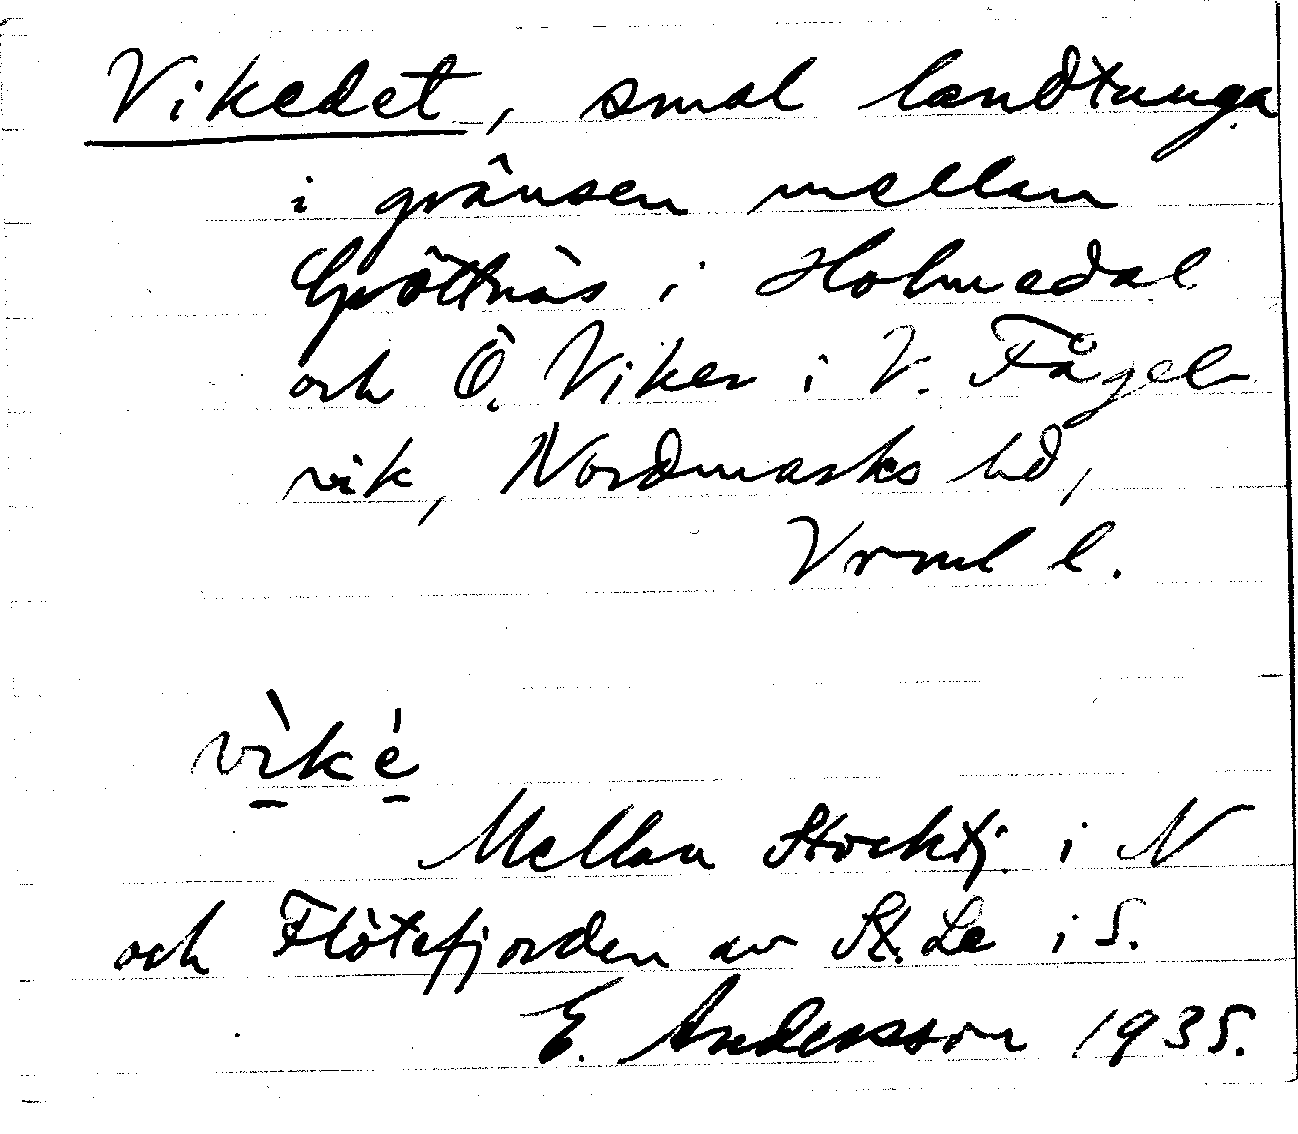 Vikedet, smal landtunga
i gränsen mellan
Gröttnäs i Holmedal
och Ö. Viker i V. Fågel-
vik, Nordmarks hd,
Vrml l.
vìké
Mellan Stocktj. i N
och Flötefjorden av St. Le i S.
E. Andersson 1935.